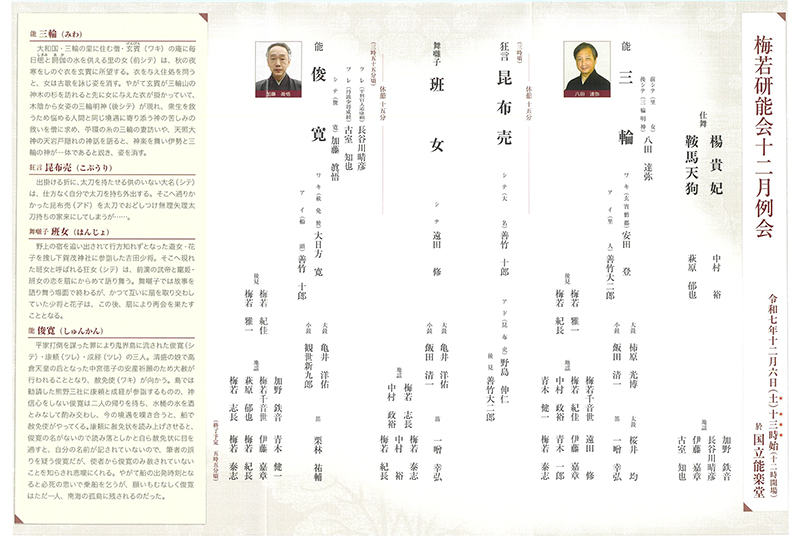 梅若研能会十二月例会
令和七年十二月六日（土）十三時始（十二時開場）
於 国立能楽堂
仕舞
楊貴妃 中村 裕
鞍馬天狗 萩原 郁也
地謡
加野 鉄音
長谷川晴彦
伊藤 嘉章
古室 知也
能 三輪
八田 達弥
前シテ（里女）
後シテ（三輪明神） 八田 達弥
ワキ（玄賓僧都） 安田 登
アイ（里人） 善竹大二郎
大鼓 柿原 光博
小鼓 飯田 清一
太鼓 桜井 均
笛 一噌 幸弘
後見
梅若 雅一
梅若 紀長
地謡
梅若千音世 遠田 修
梅若 紀佳 伊藤 嘉章
中村 政裕 青木 一郎
青木 健一 梅若 泰志
狂言 昆布売
シテ（大名） 善竹 十郎
アド（昆布売） 野島 伸仁
後見 善竹大二郎
（三時頃）
休憩 十五分
舞囃子 班女
シテ 遠田 修
大鼓 亀井 洋佑
小鼓 飯田 清一
笛 一噌 幸弘
地謡
梅若 志長 梅若 泰志
中村 政裕 中村 裕
梅若 紀長
休憩 十五分
（三時五十五分頃）
能 俊寛
加藤 眞悟
ツレ（平判官入道康頼） 長谷川晴彦
ツレ（丹波少将成経） 古室 知也
シテ（俊寛） 加藤 眞悟
ワキ（赦免使） 大日方 寛
アイ（船頭） 善竹 十郎
大鼓 亀井 洋佑
小鼓 観世新九郎
笛 栗林 祐輔
後見
梅若 紀佳
梅若 雅一
地謡
加野 鉄音 青木 健一
梅若千音世 伊藤 嘉章
萩原 郁也 梅若 紀長
梅若 志長 梅若 泰志
（終了予定 五時五分頃）
能 三輪（みわ）
大和国・三輪の里に住む僧・玄賓（ワキ）の庵に毎
日樒と閼伽の水を供える里の女（前シテ）は、秋の夜
寒をしのぐ衣を玄賓に所望する。衣を与え住処を問う
と、女は古歌を詠じ姿を消す。やがて玄賓が三輪山の
神木の杉を訪れると先に女に与えた衣が掛かっていて、
木陰から女姿の三輪明神（後シテ）が現れ、衆生を救
うため悩める人間と同じ境遇に寄り添う神の苦しみの
救いを僧に求め、苧環の糸の三輪の妻訪いや、天照大
神の天岩戸隠れの神話を語ると、神楽を舞い伊勢と三
輪の神が一体であると説き、姿を消す。
狂言 昆布売（こぶうり）
出掛ける折に、太刀を持たせる供のいない大名（シテ）
は、仕方なく自分で太刀を持ち外出する。そこへ通りか
かった昆布売（アド）を太刀でおどしつけ無理矢理太
刀持ちの家来にしてしまうが……。
舞囃子 班女（はんじょ）
野上の宿を追い出されて行方知れずとなった遊女・花
子を捜し下賀茂神社に参詣した吉田少将。そこへ現れ
た班女と呼ばれる狂女（シテ）は、前漢の武帝と寵姫・
班女の恋を扇にからめて語り舞う。舞囃子では故事を
語り舞う場面で終わるが、かつて互いに扇を取り交わし
ていた少将と花子は、この後、扇により再会を果たす
こととなる。
能 俊寛（しゅんかん）
平家打倒を謀った罪により鬼界島に流された俊寛（シ
テ）・康頼（ツレ）・成経（ツレ）の三人。清盛の娘で高
倉天皇の后となった中宮徳子の安産祈願のため大赦が
行われることとなり、赦免使（ワキ）が向かう。島では
勧請した熊野三社に康頼と成経が参詣するものの、神
信心をしない俊寛は二人の帰りを待ち、水桶の水を酒
とみなして酌み交わし、今の境遇を嘆き合うと、船で
赦免使がやってくる。康頼に赦免状を読み上げさせると、
俊寛の名がないので読み落としかと自ら赦免状に目を
通すと、自分の名前が記されていないので、筆者の誤
りを疑う俊寛だが、使者から俊寛のみ赦されていない
ことを知らされ悲嘆にくれる。やがて船の出発時刻とな
ると必死の思いで乗船を乞うが、願いもむなしく俊寛
はただ一人、南海の孤島に残されるのだった。